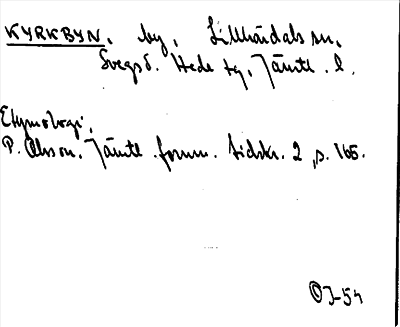 KYRKBYN, by, Lillhärdals sn,
Svegs d. Hede tg, Jämtl. l.
Etymologi,
P. Olsson, Jämtl. fornm. tidskr. 2, s. 165.
OJ-54